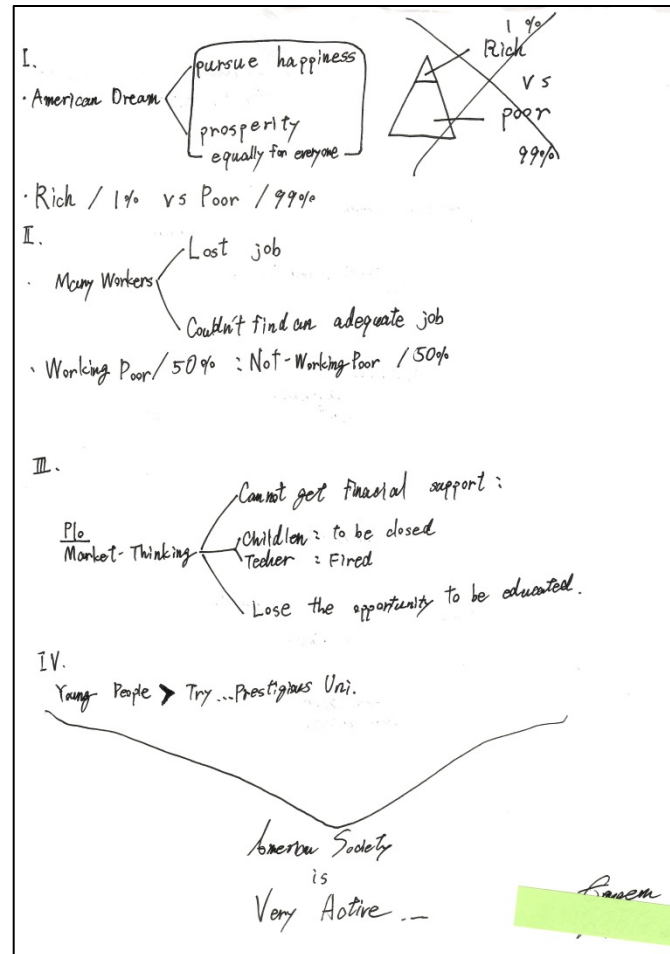 I.
· American Dream
pursue happiness
prosperity
equally for everyone
1%
Rich
vs
poor
99%
· Rich / 1% vs Poor / 99%
II.
· Many Workers
Lost job
Couldn't find an adequate job
· Working Poor / 50% : Not-Working Poor / 50%
III.
Plo
Market-Thinking
Cannot get finacial support :
Childlen : to be closed
Techer : Fired
Lose the opportunity to be educated.
IV.
Young People > Try ... Prestigious Uni.
Society
is
Very Active ...